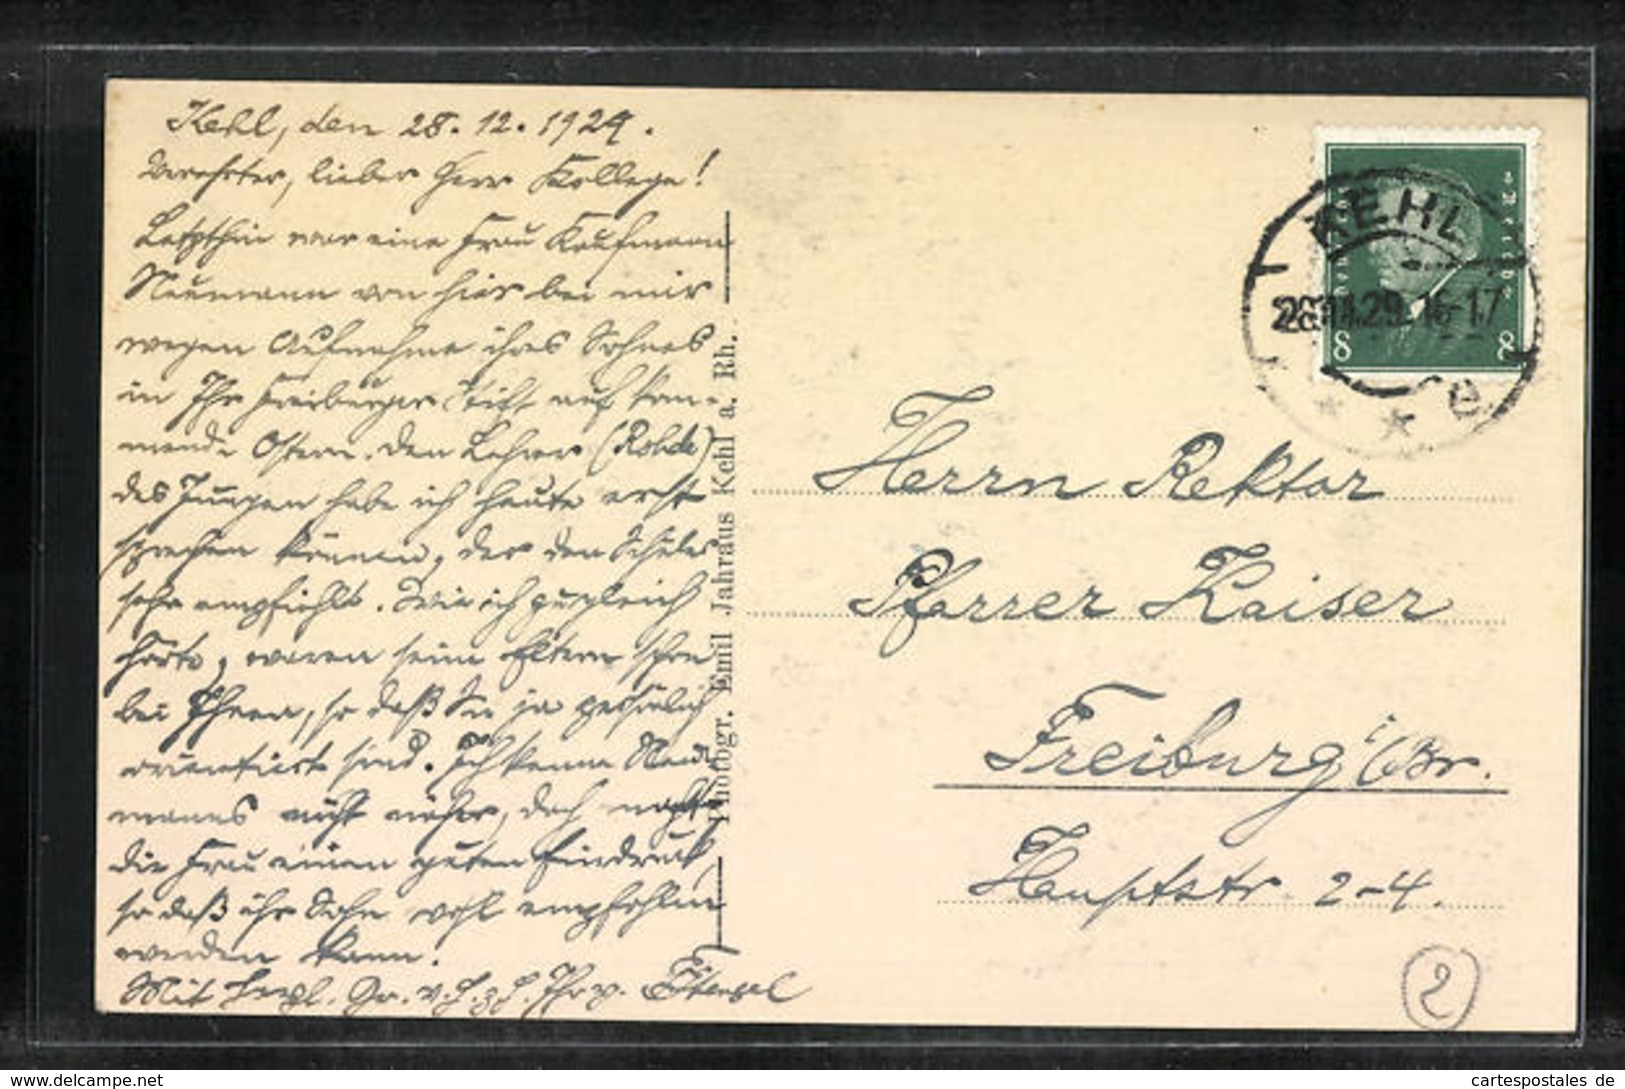 Kehl, den 28.12.1929.
Verehrter, lieber Herr Kollege!
Letzthin war eine Frau Kaufmann
Neumann von hier bei mir
wegen Aufnahme ihres Sohnes
in Ihr Freiburger Stift auf kom-
mende Ostern. Den Lehrer (Rohde)
des Jungen habe ich heute erst
sprechen können, der den Schüler
sehr empfiehlt. Wie ich zugleich
hörte, waren seine Eltern schon
bei Ihnen, so daß Sie ja persönlich
orientiert sind. Ich kenne Neu-
manns nicht näher, doch macht
die Frau einen guten Eindruck,
so daß ihr Sohn wohl empfohlen
werden kann.
Mit herzl. Gr. v. H. z. H. Ihr
Photogr. Emil Jahraus Kehl a. Rh.
KEHL
29 16-17
e
8 8
Herrn Rektor
Pfarrer Kaiser
Freiburg i/Br.
Hauptstr 2-4.
2
www.delcampe.net
cartespostales de